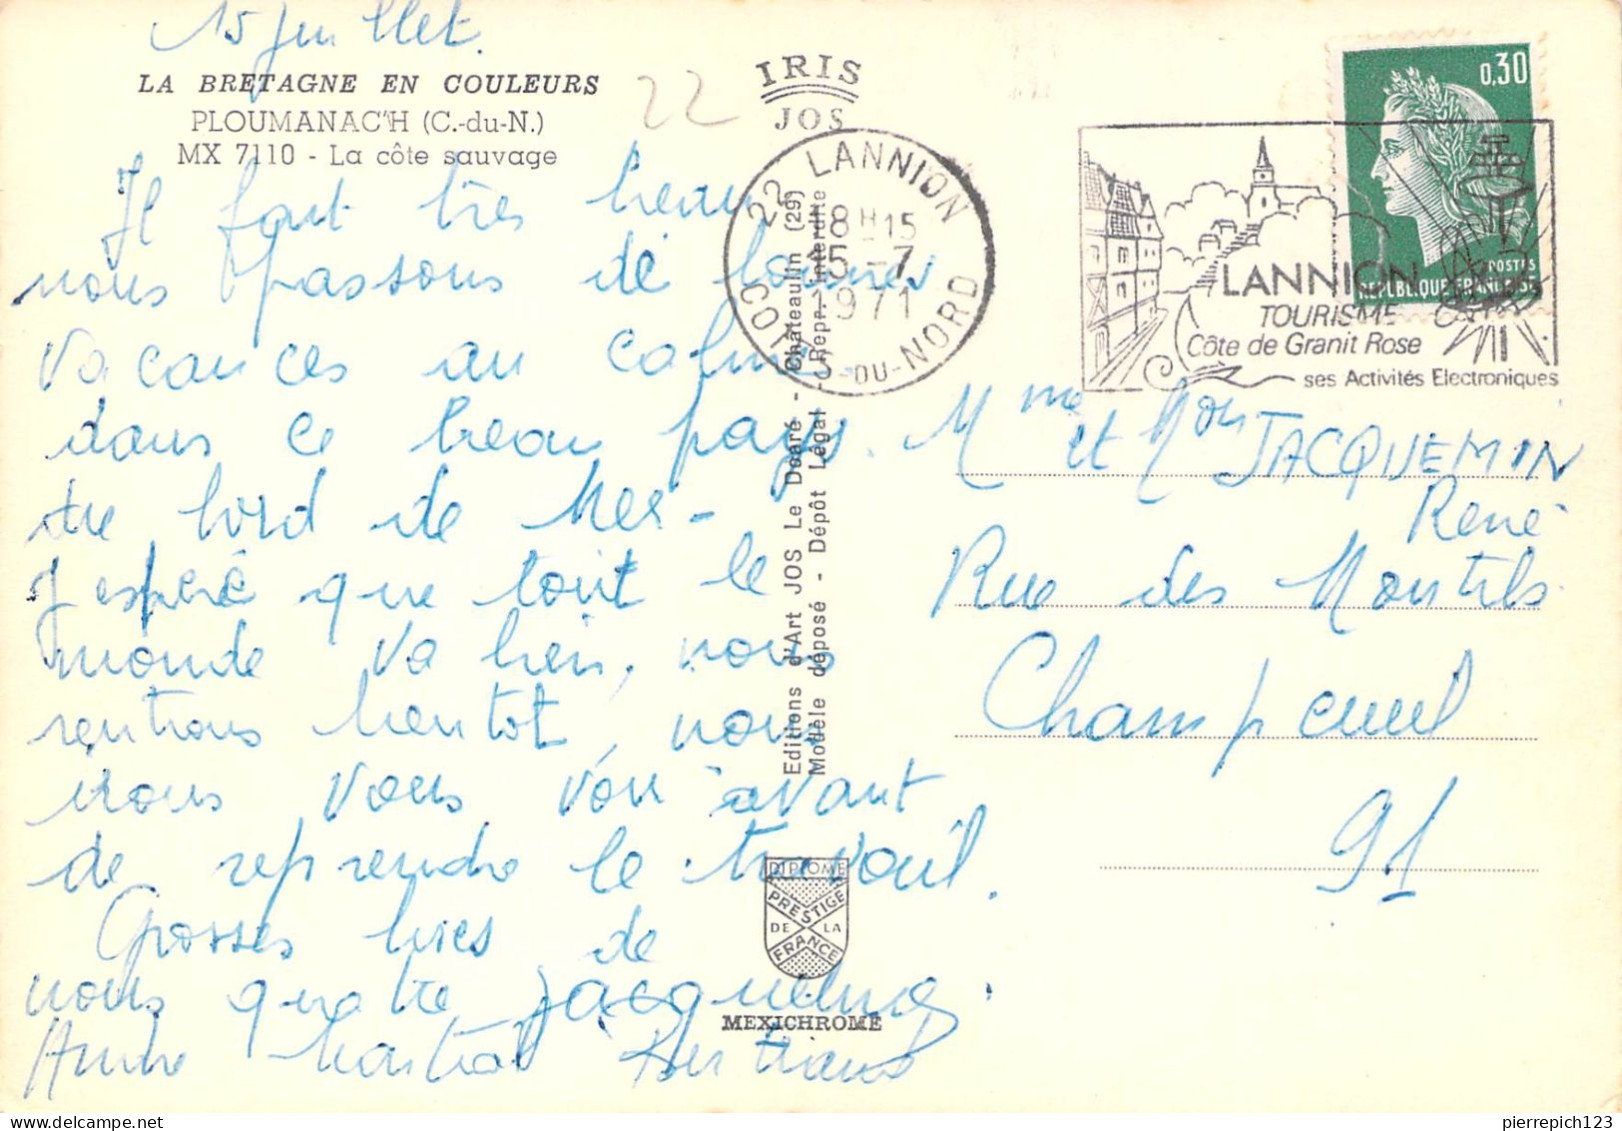 15 juillet.
LA BRETAGNE EN COULEURS
PLOUMANAC'H (C.-du-N.)
MX 7110 - La côte sauvage
22
IRIS
JOS
Il fait très beau
nous passons de bonnes
vacances au calme
dans ce beau pays.
du bord de Mer -
J'espère que tout le
monde va bien, nous
rentrons bientôt, nous
irons vous voir avant
de reprendre le travail.
Grosses bises de
nous quatre Jacqueline
André Martial Bertrand
22 LANNION
18 H 15
15 - 7
1971
COTES-DU-NORD
Editions d'Art JOS Le Doaré - Châteaulin (29)
Modèle déposé - Dépôt Légal - Repr. Interdite
DIPLOME
PRESTIGE
DE LA
FRANCE
MEXICHROME
0,30
POSTES
REPUBLIQUE FRANCAISE
LANNION
TOURISME
Côte de Granit Rose
ses Activités Electroniques
Mme et Mon JACQUEMIN
René
Rue des Montils
Champcueil
91
pierrepich123